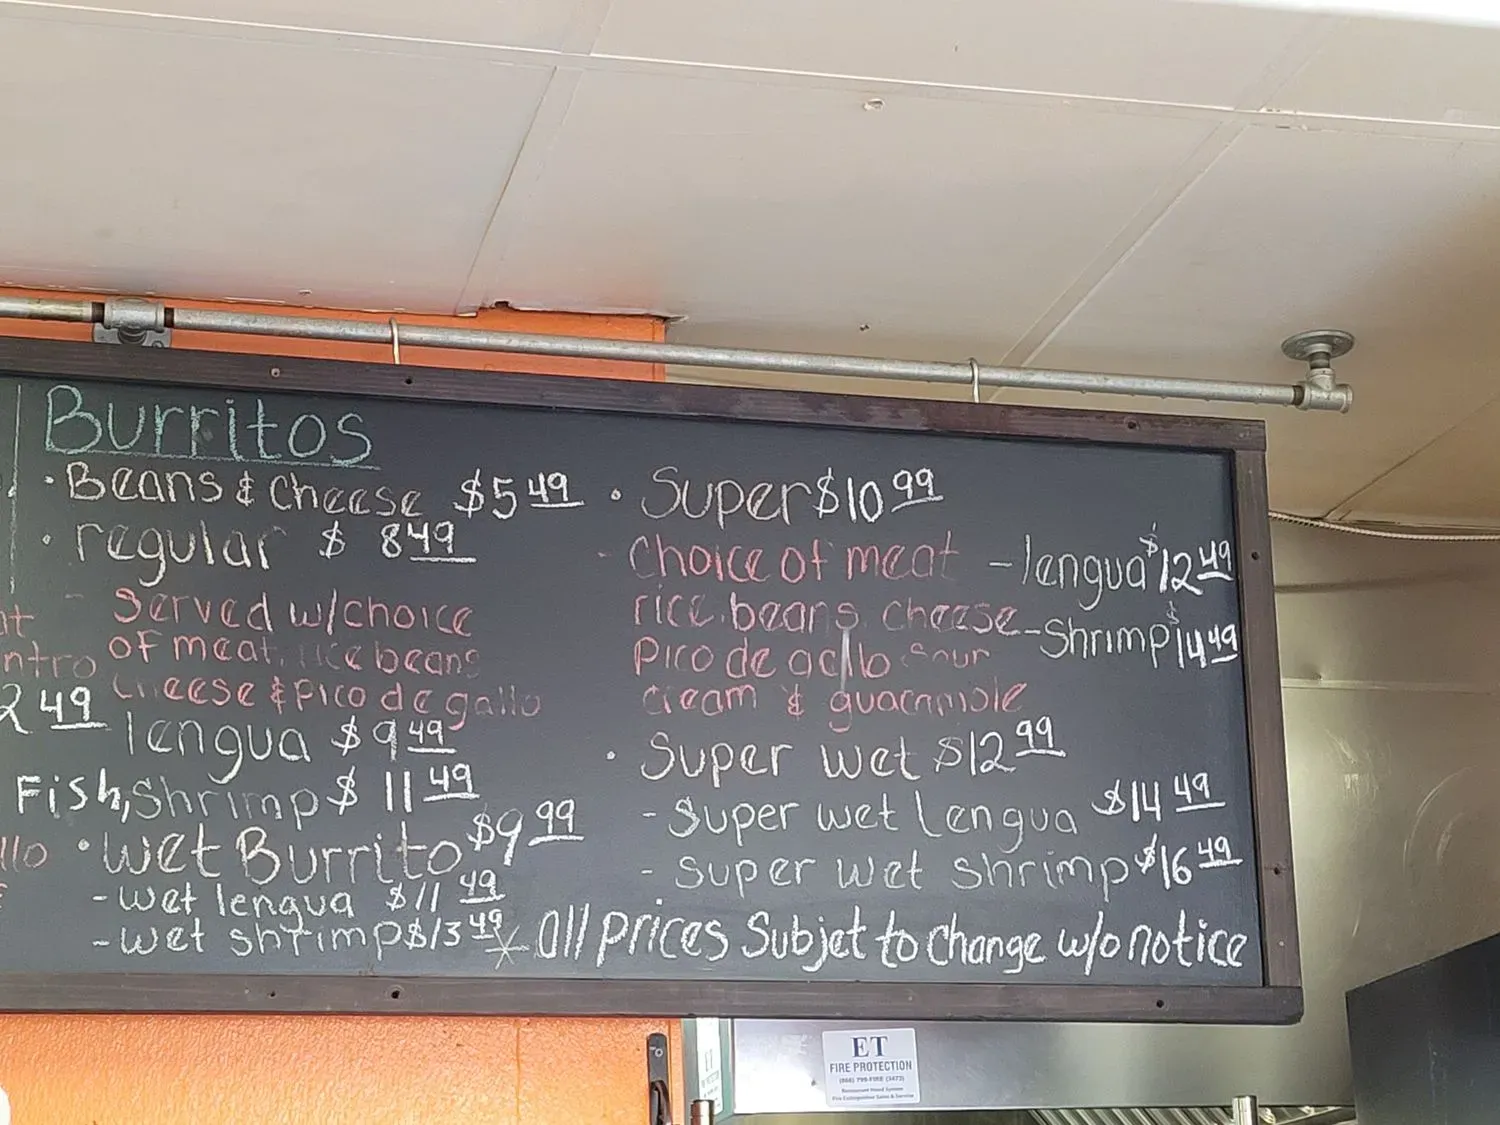 Burritos
· Beans & Cheese $5 49
· regular $ 8 49
- Served w/choice
of meat, rice beans
cheese & pico de gallo
lengua $9 49
Fish, Shrimp $ 11 49
· Wet Burrito $9 99
- wet lengua $11 49
- wet shrimp $13 49
2 49
llo
· Super $10 99
- Choice of meat
rice, beans, cheese
Pico de gallo sour
cream & guacamole
- lengua $12 49
- Shrimp $14 49
· Super wet $12 99
- Super wet Lengua $14 49
- super wet shrimp $16 49
* all prices Subjet to change w/o notice
ET
FIRE PROTECTION
(866) 799-FIRE (3473)
Restaurant Hood System
Fire Extinguisher Sales & Service